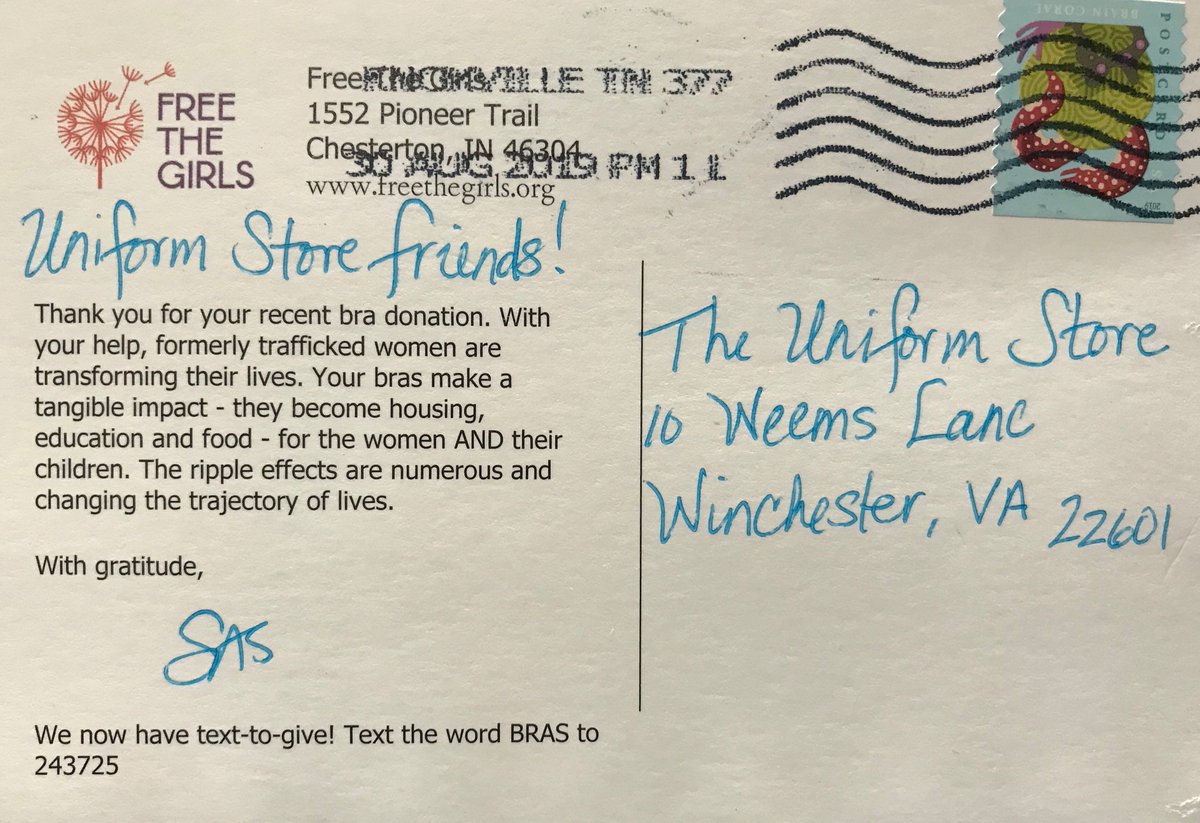 FREE
THE
GIRLS
Free The Girls
1552 Pioneer Trail
Chesterton, IN 46304
www.freethegirls.org
TN 377
30 AUG 2019 PM 1 L
BRAIN CORAL
POSTCARD
2019
Uniform Store friends!
Thank you for your recent bra donation. With
your help, formerly trafficked women are
transforming their lives. Your bras make a
tangible impact - they become housing,
education and food - for the women AND their
children. The ripple effects are numerous and
changing the trajectory of lives.
With gratitude,
SAS
We now have text-to-give! Text the word BRAS to
243725
The Uniform Store
10 Weems Lane
Winchester, VA 22601